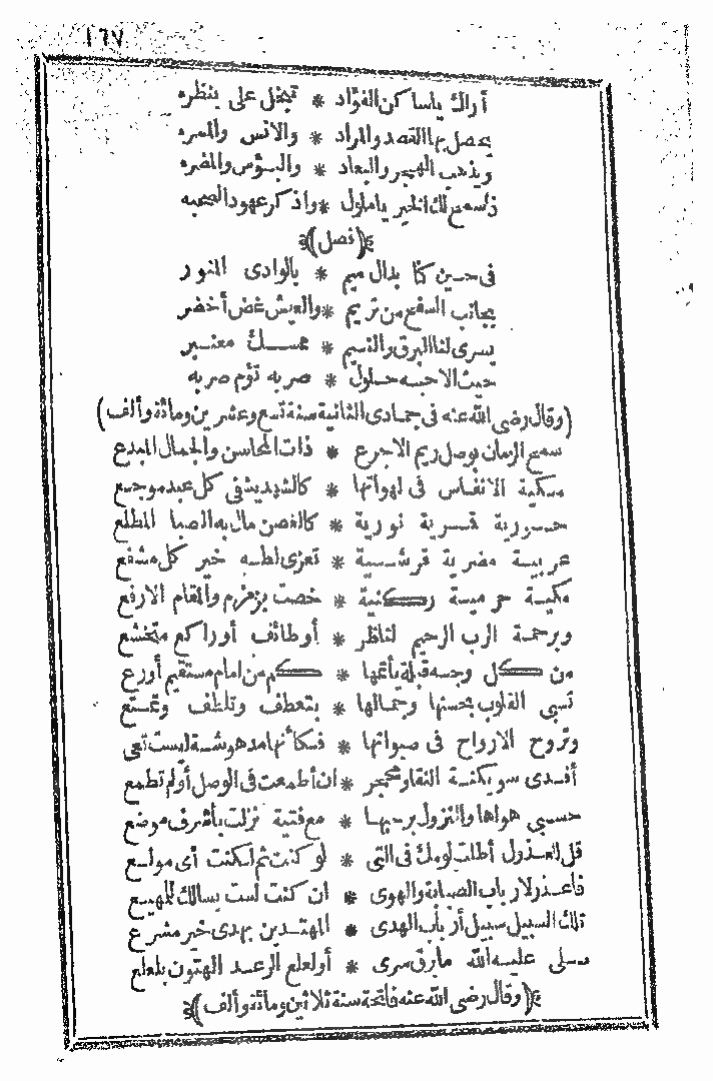 ١٦٧
أراك ياساكن الفؤاد * تبخل على بنظره
يحصل بها القصد والمراد * والانس والمسره
ويذهب الهجر والبعاد * والبؤس والمضره
فاسمع لك الخير ياملول * واذكر عهود الصحبه
﴿فصل﴾
فى حسين كنا بذال ميم * بالوادى المنور
بجانب السفح من تريم * والعيش غض أخضر
يسرى لنا البرق والنسيم * بمسك معنبر
حيث الاحبه حلول * صربه تؤم صربه
(وقال رضى الله عنه فى جمادى الثانية سنة تسع وعشرين ومائة وألف)
سمح الزمان بوصل ريم الاجرع * ذات المحاسن والجمال المبدع
مسكية الانفاس فى لهواتها * كالشهد يشفى كل عبد موجع
حورية قمرية نورية * كالغصن مال به الصبا المطلع
عربية مضرية قرشية * تعزى لطه خير كل مشفع
مكية حرمية ركنية * خصت بزمزم والمقام الارفع
وبرحمة الرب الرحيم لناظر * أوطائف أوراكع متخشع
من كل وجه قبلة يأتمها * كم من امام مستقيم أورع
تسبى القلوب بحسنها وجمالها * بتعطف وتلطف وتمتع
وتروح الارواح فى صبواتها * فكأنها مدهوشة ليست تعى
أفدى سويكنة النقا ومحجر * ان أطمعت فى الوصل أولم تطمع
حسبى هواها والنزول برحبها * مع فتية نزلت بأشرف موضع
قل للعذول أطلت لومك فى التى * لو كنت ثم لكنت أى مولع
فاعذر لارباب الصبابة والهوى * ان كنت لست بسالك للمهيع
تلك السبيل سبيل أرباب الهدى * المهتدين بهدى خير مشرع
صلى عليه الله مابرق سرى * أولعلع الرعد الهتون بلعلع
﴿وقال رضى الله عنه فاتحة سنة ثلاثين ومائة وألف﴾